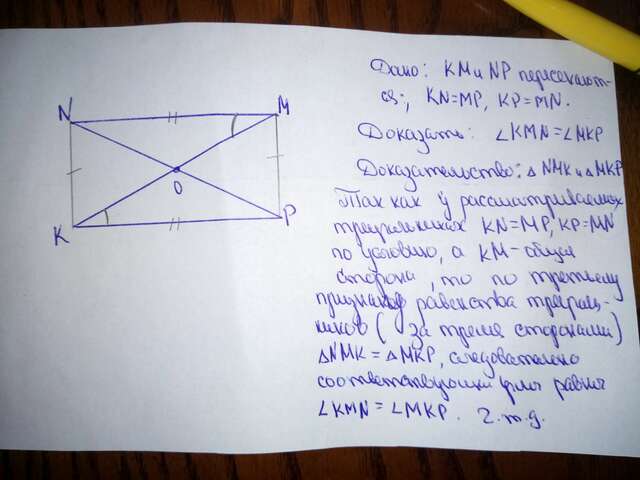 N
M
O
K
P
Дано: KM и NP пересекают-
ся;, KN=MP, KP=MN.
Доказать: ∠KMN=∠MKP
Доказательство: △NMK и △MKP
Так как у рассматриваемых
треугольниках KN=MP, KP=MN
по условию, а KM-общая
сторона, то по третьему
признаку равенства треуголь-
ников (за тремя сторонами)
△NMK = △MKP, следовательно
соответствующий углы равны
∠KMN=∠MKP. Ч.т.д.